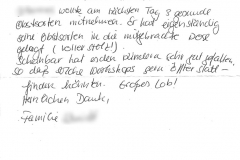 wollte am nächsten Tag, 3 gesunde
Obstsorten mitnehmen. Er hat eigenständig
seine Obstsorten in die mitgebrachte Dose
gelegt (voller Stolz!).
Scheinbar hat den Kindern sehr gut gefallen,
so daß solche Workshops gern öfter statt-
finden könnten. Großes Lob!
Herzlichen Dank,
Familie